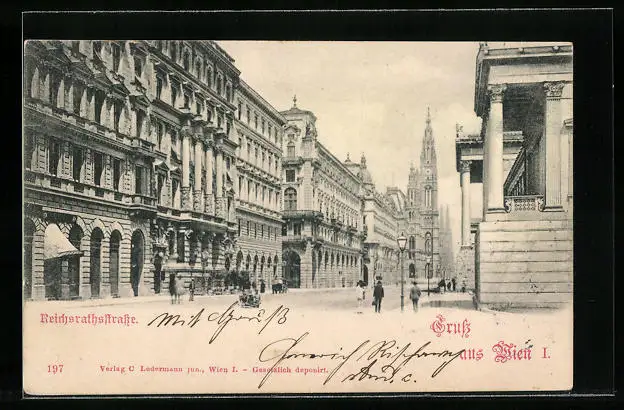 Reichsrathsstraße.
Mit Gruß
Gruß
aus Wien I.
197
Verlag C Ledermann jun., Wien I. – Gesetzlich deponirt.